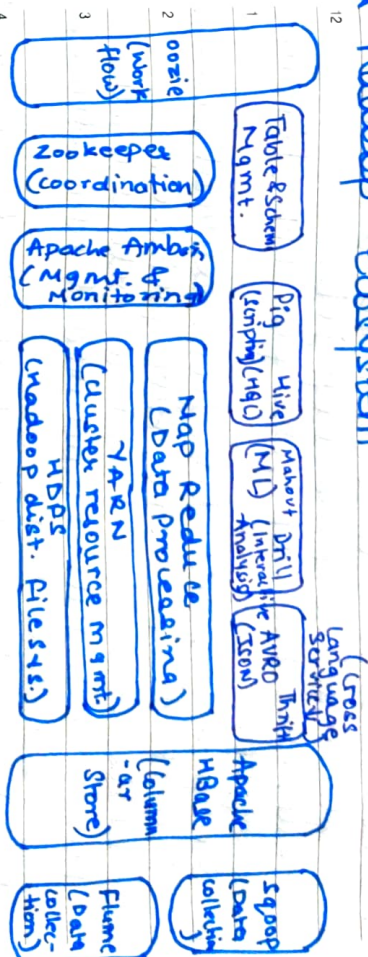 Hadoop Ecosystem
12
1
2
3
4
Oozie
(Work
flow)
Table & Schema
Mgmt.
Zookeeper
(coordination)
Apache Ambari
(Mgmt. &
Monitoring)
Pig Hive
(Scripting) (HQL)
Mahout Drill
(ML) (Interactive
Analysis)
AVRO Thrift
(JSON)
(Cross
Language
Service)
Map Reduce
(Data Processing)
YARN
(Cluster resource mgmt)
HDFS
(Hadoop dist. file sys.)
Apache
HBase
(Column
-ar
Store)
Sqoop
(Data
Collection)
Flume
(Data
collec-
tion)